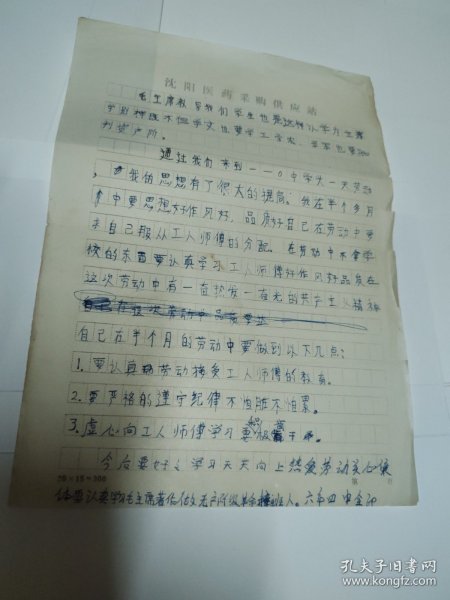 沈阳医药采购供应站
毛主席教导我们学生也是这样以学为主兼
学别样既不但学文也要学工学农、学军也要批
判资产阶。
通过我们来到一一〇中学头一天劳动,
我的思想有了很大的提高。我在半个多月
中要思想好作风好,品质好自己在劳动中要
求自己服从工人师傅的分配。在劳动中不会学
校的东西要认真学习工人师傅好作风好品质在
这次劳动中有一分热发一分光的共产主义精神
自己在半个月的劳动中要做到以下几点:
1.要认真劳动接受工人师傅的教育。
2.要严格的遵守纪律不怕脏不怕累。
3.虚心向工人师傅学习要积苦干。
今后要好好学习天天向上热爱劳动关心集
体要认真学毛主席著作做无产阶级革命接班人。六年四
20×15=300
第 页
孔夫子旧书网
www.kongfz.com